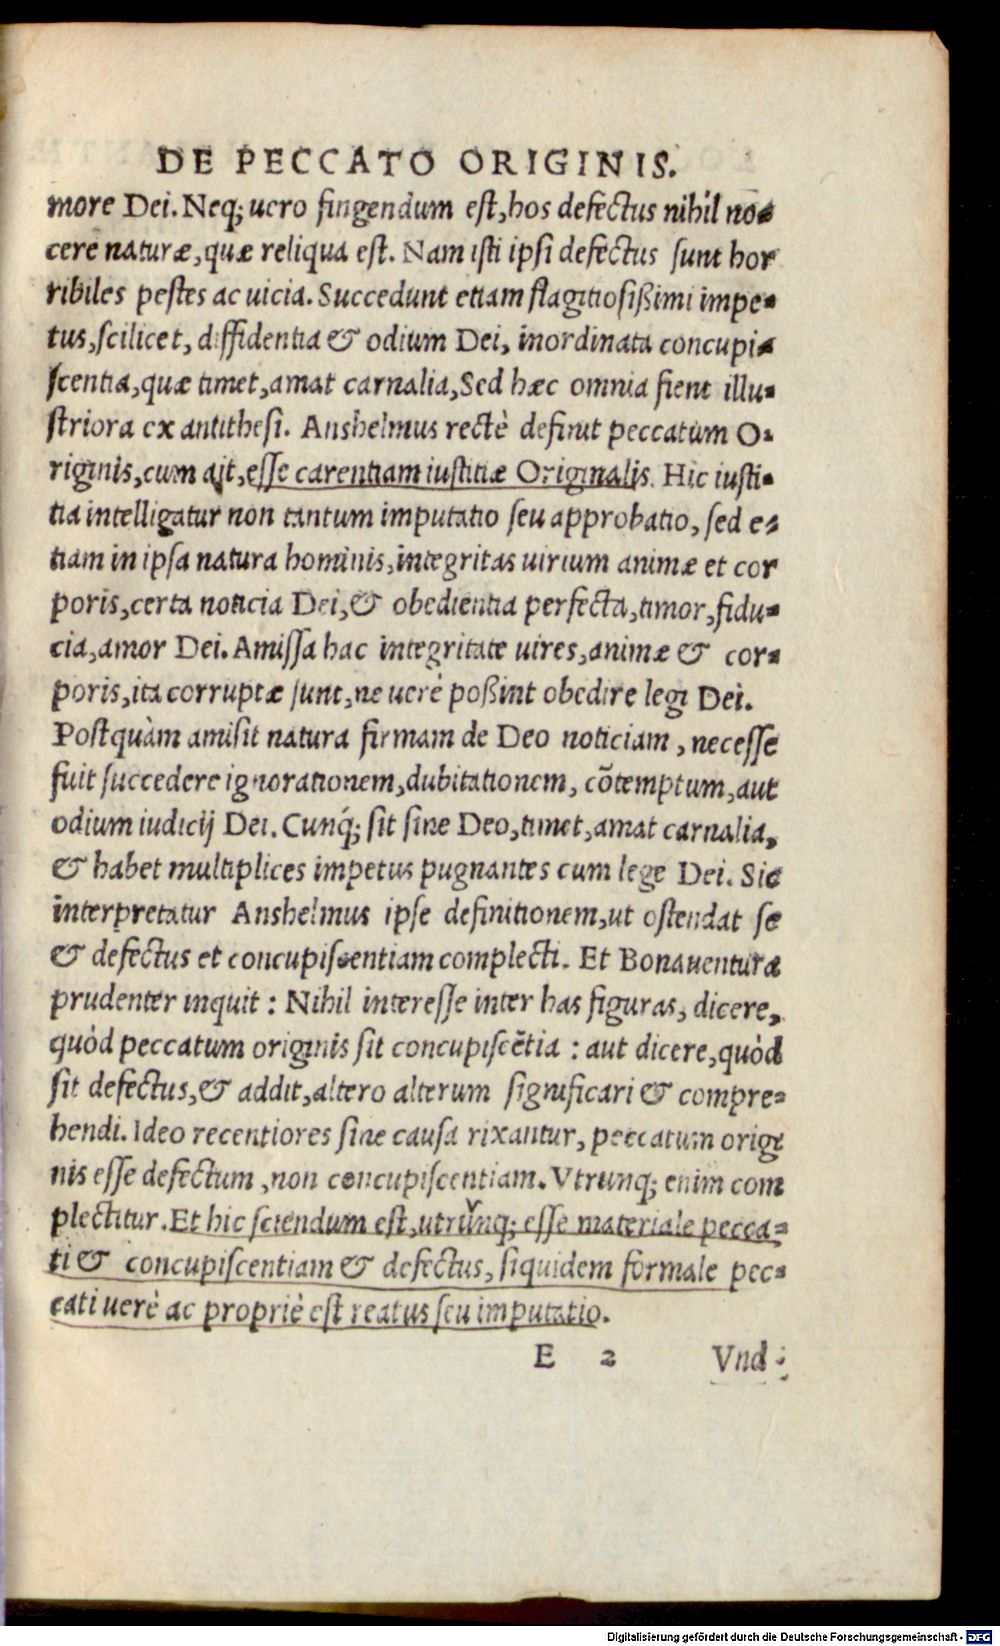 DE PECCATO ORIGINIS.
more Dei. Neq; uero fingendum est, hos defectus nihil no=
cere naturæ, quæ reliqua est. Nam isti ipsi defectus sunt hor
ribiles pestes ac uicia. Succedunt etiam flagitiosißimi impe=
tus, scilicet, diffidentia & odium Dei, inordinata concupi=
scentia, quæ timet, amat carnalia, Sed hæc omnia fient illu=
striora ex antithesi. Anshelmus rectè definit peccatum O=
riginis, cum ait, esse carentiam iustitiæ Originalis. Hic iusti=
tia intelligatur non tantum imputatio seu approbatio, sed e=
tiam in ipsa natura hominis, integritas uirium animæ et cor
poris, certa noticia Dei, & obedientia perfecta, timor, fidu=
cia, amor Dei. Amissa hac integritate uires, animæ & cor=
poris, ita corruptæ sunt, ne uerè poßint obedire legi Dei.
Postquàm amisit natura firmam de Deo noticiam, necesse
fuit succedere ignorationem, dubitationem, cõtemptum, aut
odium iudicij Dei. Cunq́; sit sine Deo, timet, amat carnalia,
& habet multiplices impetus pugnantes cum lege Dei. Sic
interpretatur Anshelmus ipse definitionem, ut ostendat se
& defectus et concupiscentiam complecti. Et Bonauentura
prudenter inquit : Nihil interesse inter has figuras, dicere,
quòd peccatum originis sit concupiscẽtia : aut dicere, quòd
sit defectus, & addit, altero alterum significari & compre=
hendi. Ideo recentiores sine causa rixantur, peccatum origi
nis esse defectum, non concupiscentiam. Vtrunq; enim com
plectitur. Et hic sciendum est, utrunq; esse materiale pecca=
ti & concupiscentiam & defectus, siquidem formale pec=
cati uerè ac propriè est reatus seu imputatio.
E 2 Vnd=
Digitalisierung gefördert durch die Deutsche Forschungsgemeinschaft - DFG